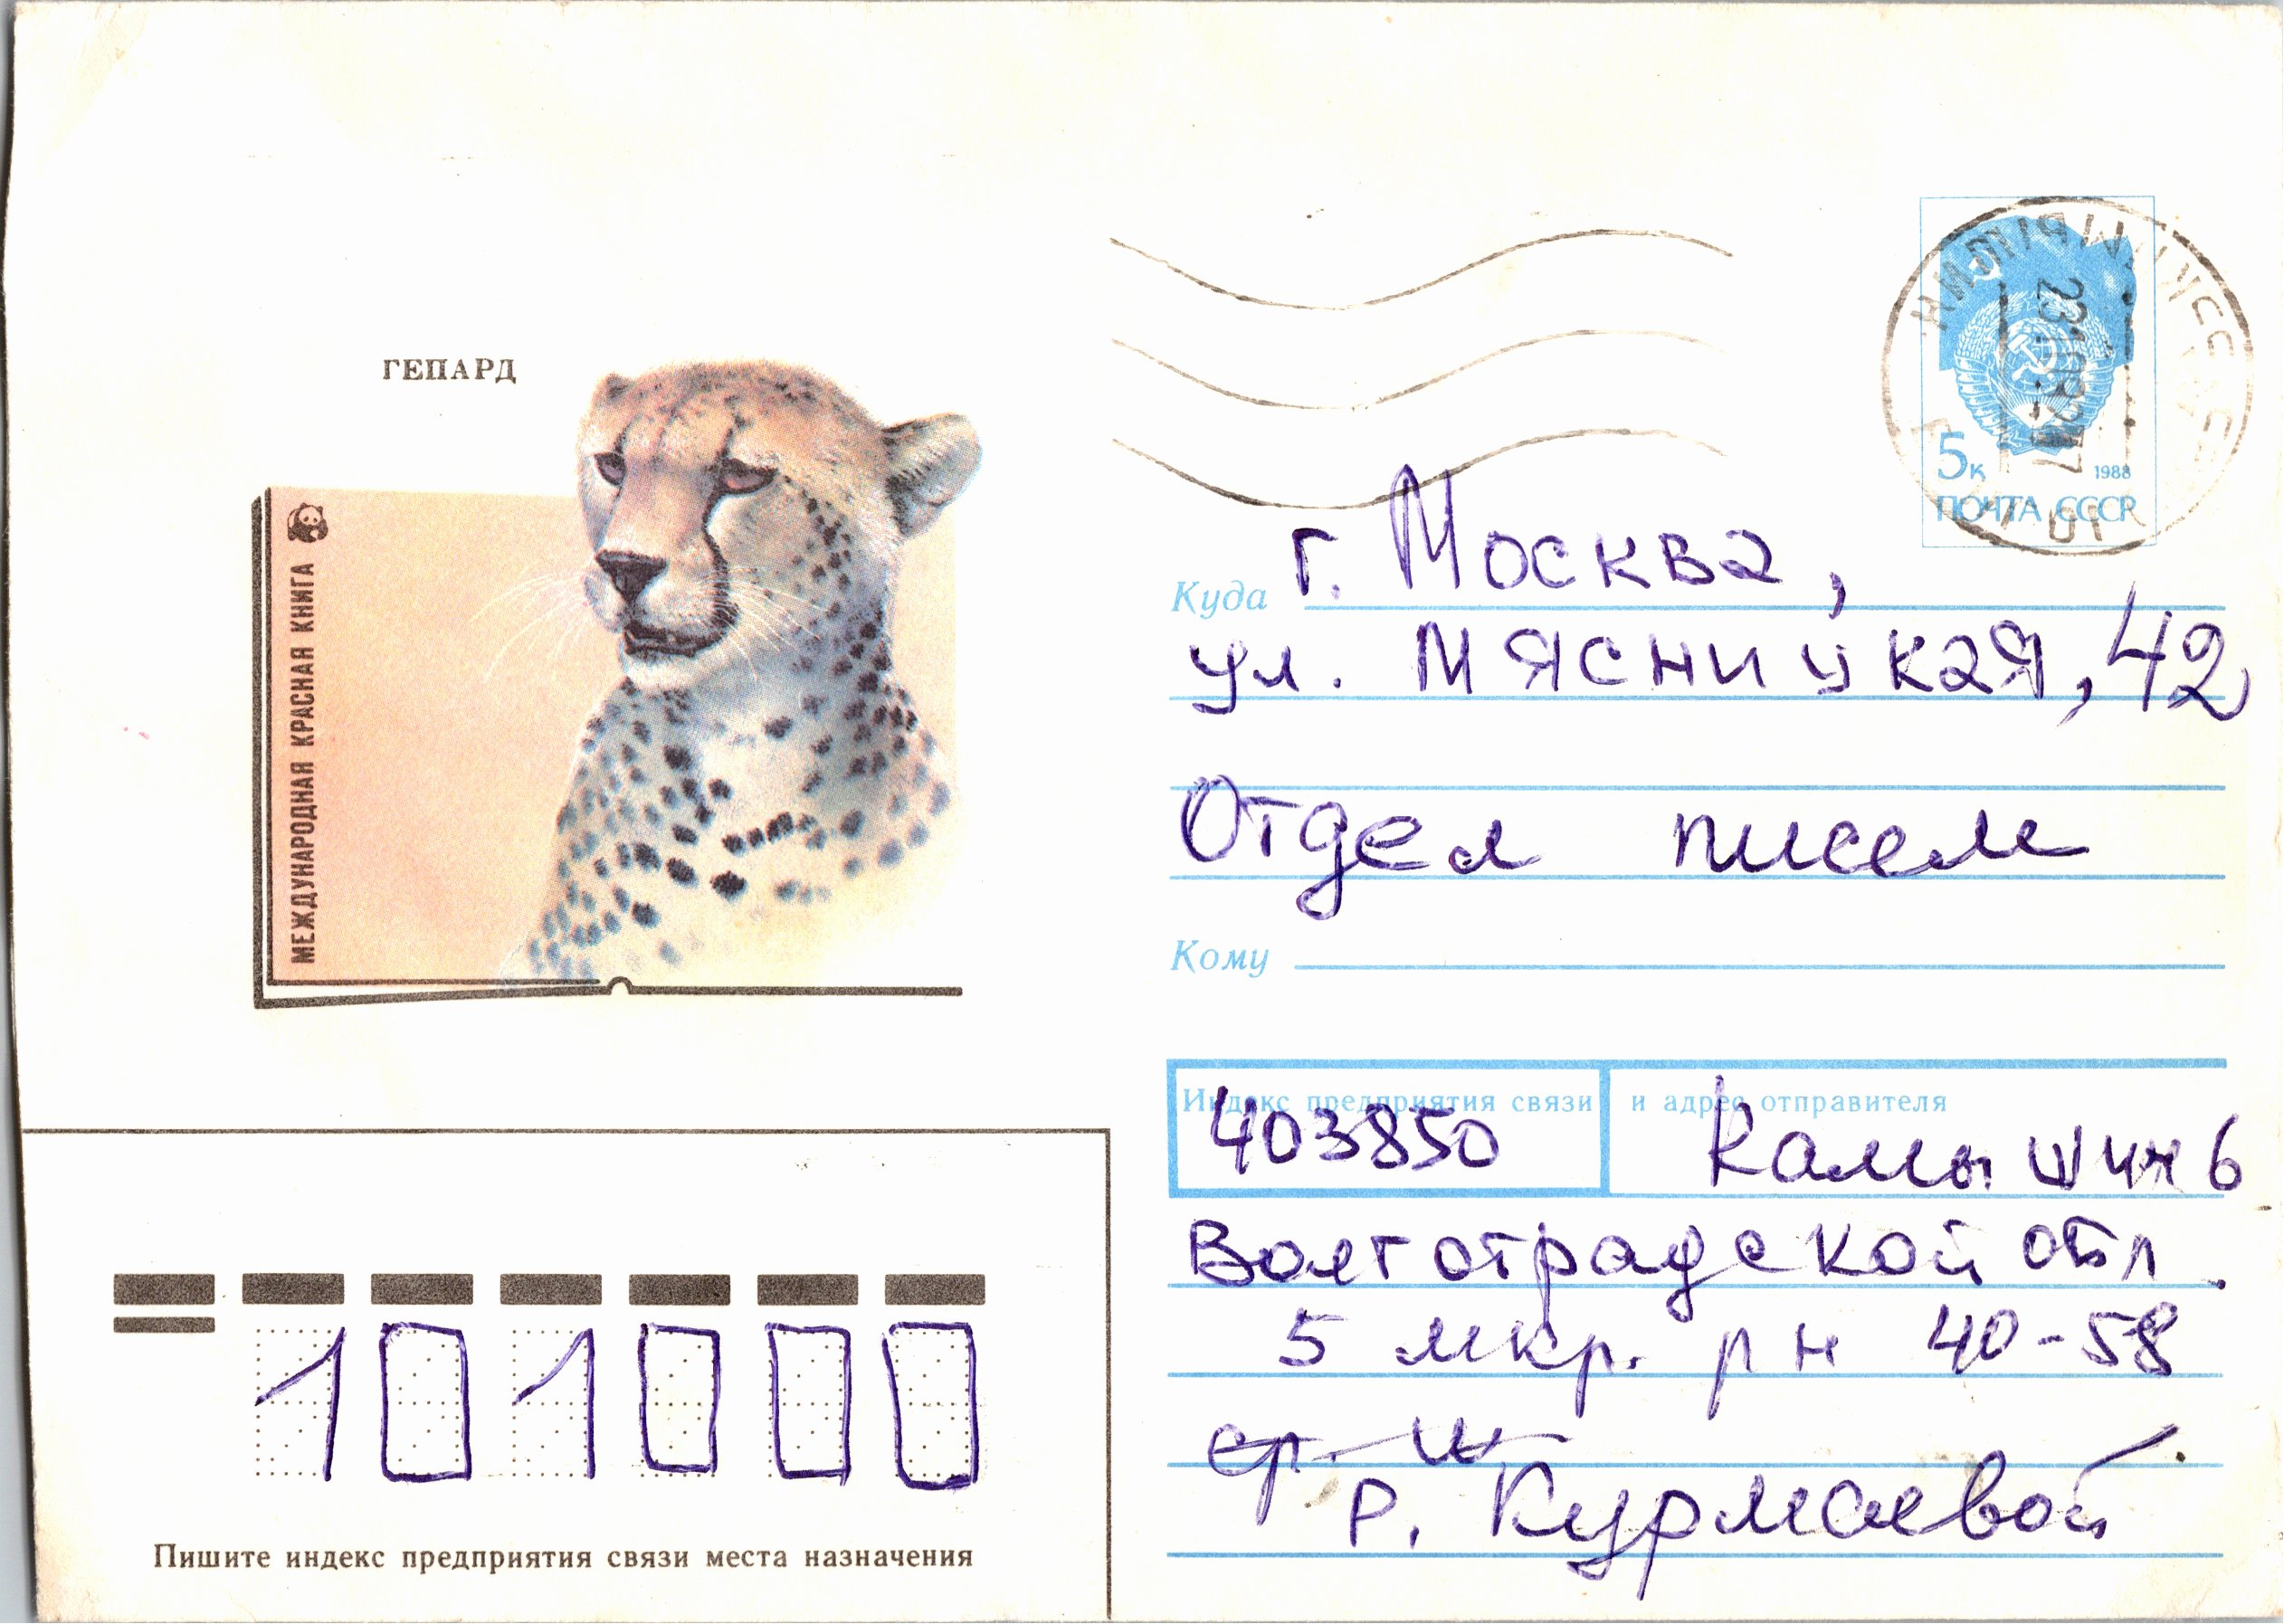 ГЕПАРД
МЕЖДУНАРОДНАЯ КРАСНАЯ КНИГА
5к
1988
ПОЧТА СССР
Куда г. Москва,
ул. Мясницкая, 42
Отдел писем
Кому
Индекс предприятия связи и адрес отправителя
403850 Камышин 6
Волгоградской обл.
5 мкр. рн 40-58
Р. Курмаевой
101000
Пишите индекс предприятия связи места назначения